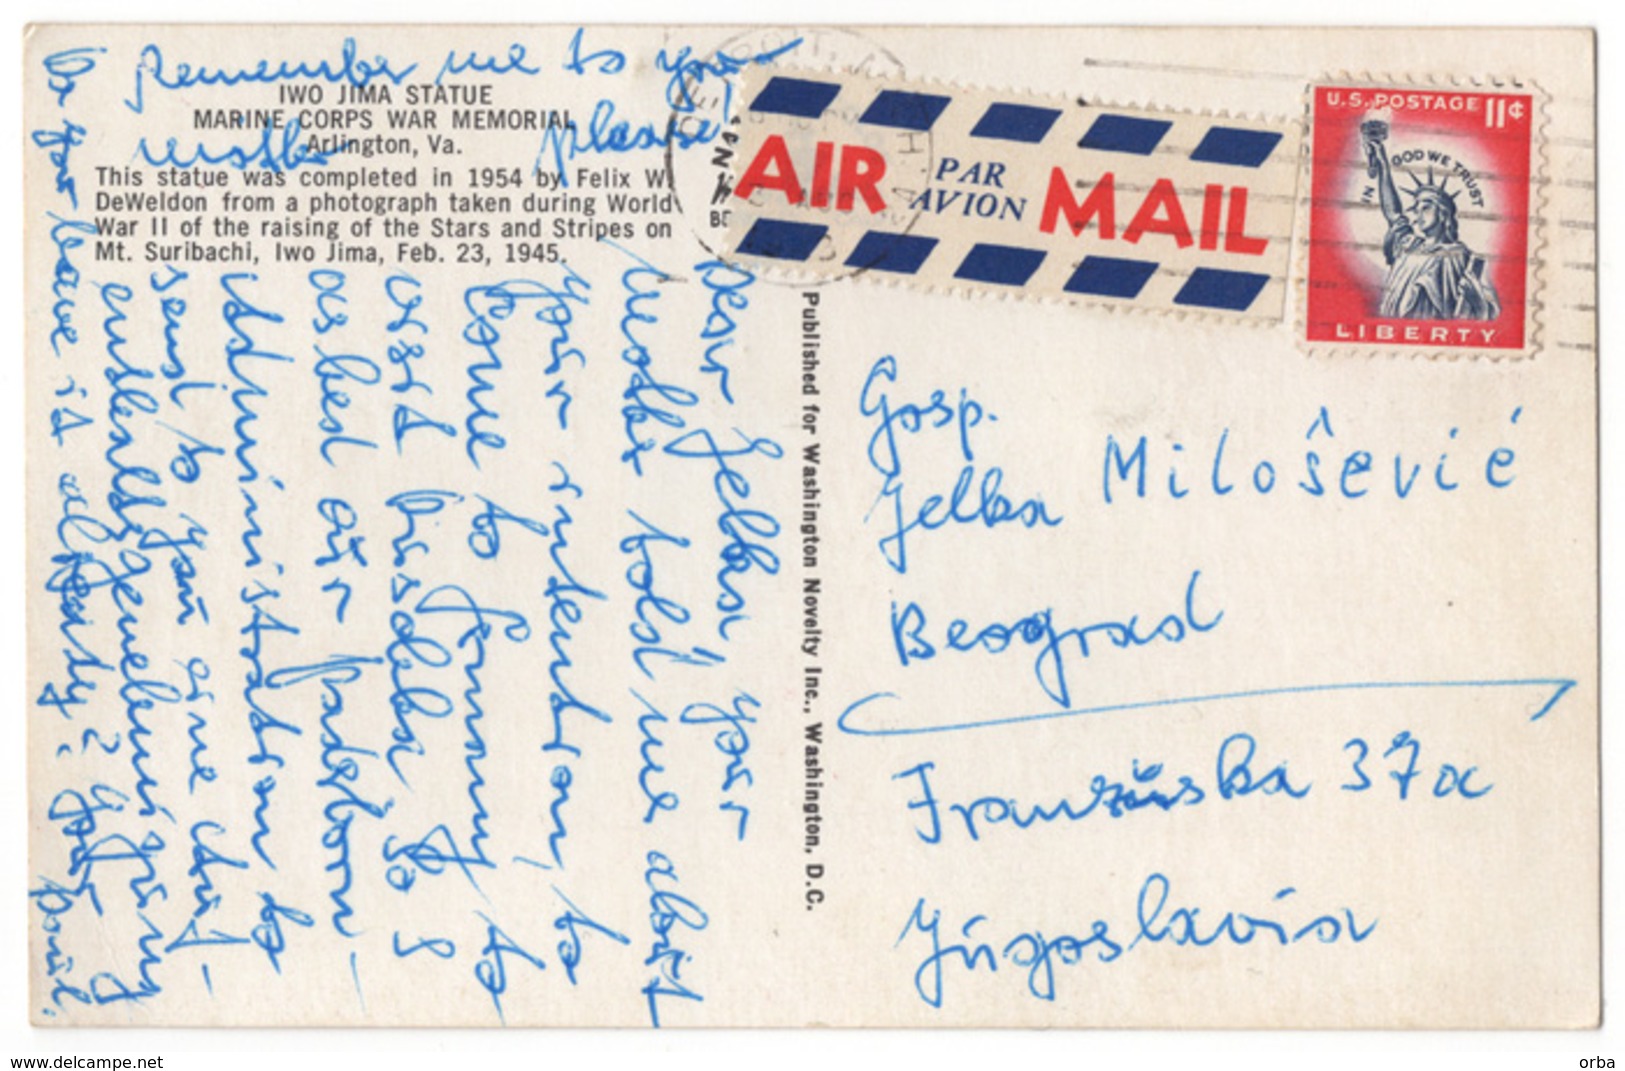 Remember me to your
mother please!
IWO JIMA STATUE
MARINE CORPS WAR MEMORIAL
Arlington, Va.
This statue was completed in 1954 by Felix W.
DeWeldon from a photograph taken during World
War II of the raising of the Stars and Stripes on
Mt. Suribachi, Iwo Jima, Feb. 23, 1945.
Dear Jelka, your
Mother told me about
your intention, to
come to Germany to
visit Krisolska So I
as bed our
administration to
send to you
is already? your
Paul.
Published for Washington Novelty Inc., Washington, D.C.
AIR MAIL
PAR AVION
U.S. POSTAGE 11¢
IN GOD WE TRUST
LIBERTY
Gosp.
Jelka Milošević
Beograd
Franzuska 37a
Jugoslavia
delcampe.net
orba